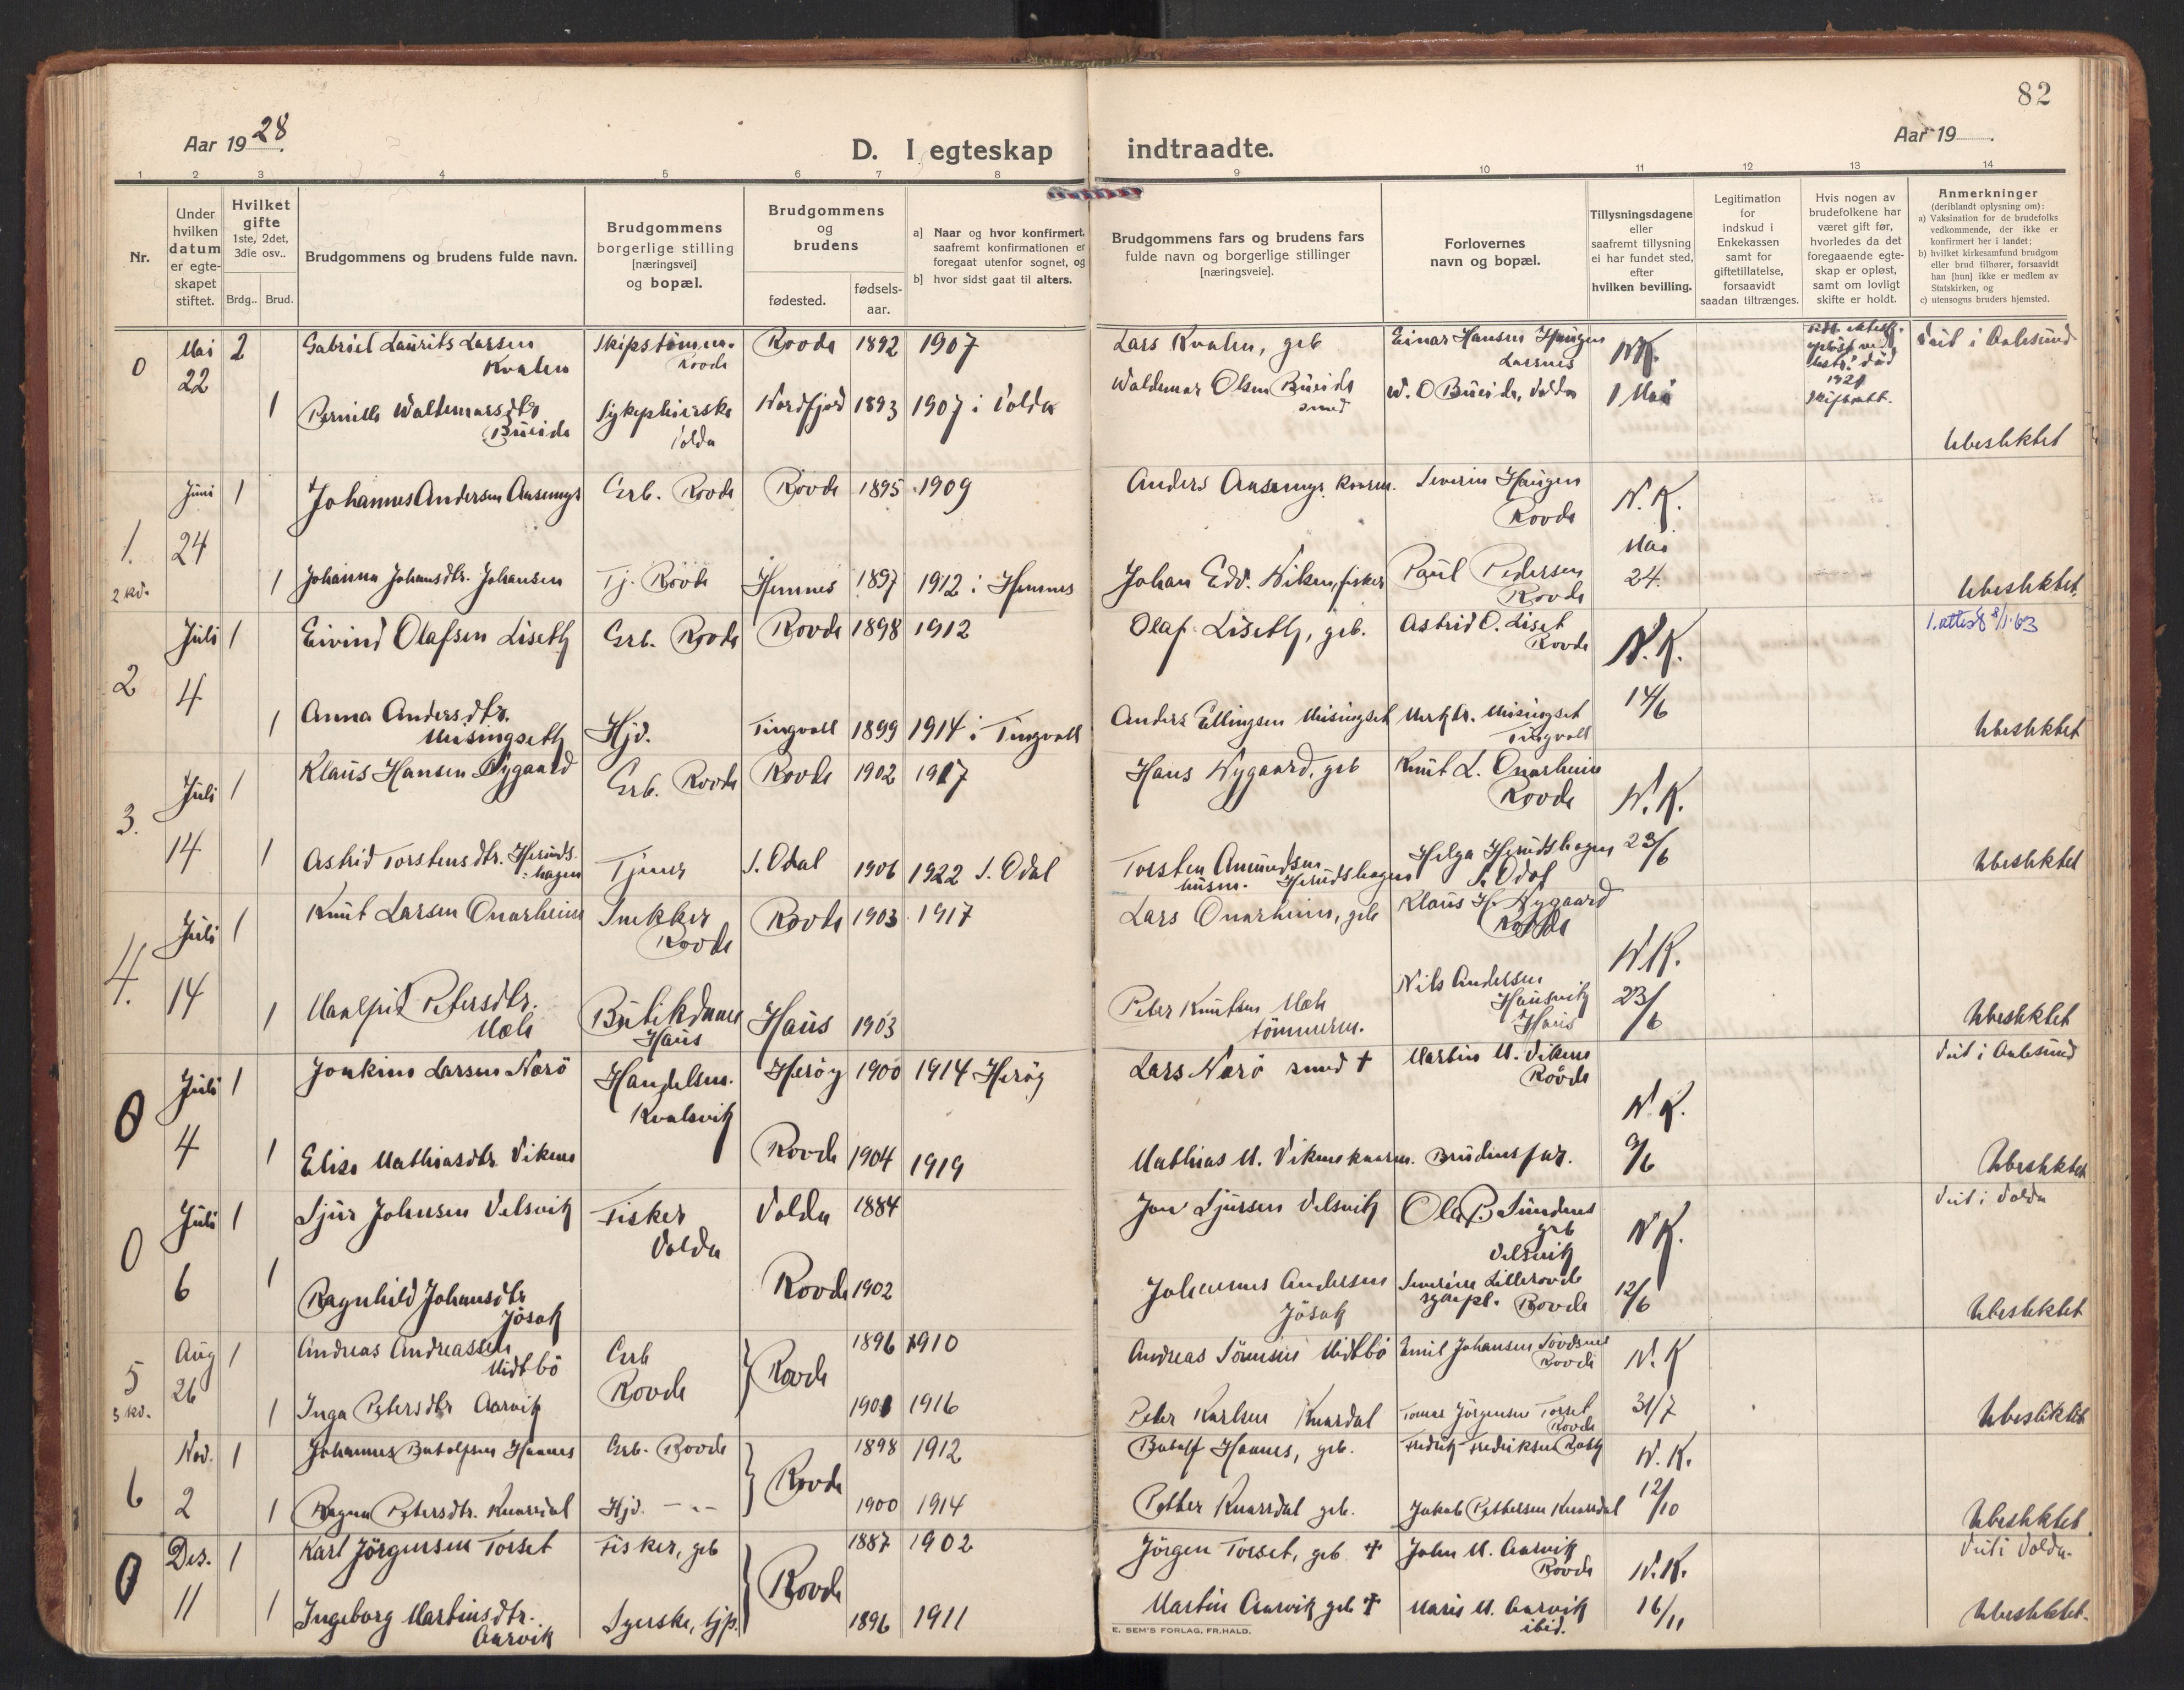 82
Aar 1928.
D. I egteskap indtraadte.
Aar 19
1 2 3 4 5 6 7 8 9 10 11 12 13 14
Nr.
Under
hvilken
datum
er egte-
skapet
stiftet.
Hvilket
gifte
1ste, 2det,
3die osv..
Brdg..
Brud.
Brudgommens og brudens fulde navn.
Brudgommens
borgerlige stilling
[næringsvei]
og bopæl.
Brudgommens
og
brudens
fødested.
fødsels-
aar.
a] Naar og hvor konfirmert,
saafremt konfirmationen er
foregaat utenfor sognet, og
b] hvor sidst gaat til alters.
Brudgommens fars og brudens fars
fulde navn og borgerlige stillinger
[næringsveie].
Forlovernes
navn og bopæl.
Tillysningsdagene
eller
saafremt tillysning
ei har fundet sted,
efter
hvilken bevilling.
Legitimation
for
indskud i
Enkekassen
samt for
giftetillatelse,
forsaavidt
saadan tiltrænges.
Hvis nogen av
brudefolkene har
været gift før,
hvorledes da det
foregaaende egte-
skap er opløst,
samt om lovligt
skifte er holdt.
Anmerkninger
(deriblandt oplysning om):
a) Vaksination for de brudefolks
vedkommende, der ikke er
konfirmert her i landet;
b) hvilket kirkesamfund brudgom
eller brud tilhører, forsaavidt
han [hun] ikke er medlem av
Statskirken, og
c) utensogns bruders hjemsted.
0 Mai 22 2 Gabriel Laurits Larsen Kvalen
Skipstømm. Rovde
Rovde 1892 1907
Lars Kvalen, grb
Einar Hansen Haugen Larsnes
N.K.
Viet i Aalesund
1 Pernille Waldemarsdtr. Bueide
Sykepleierske Volda
Nordfjord 1893 1907 i Volda
Waldemar Olsen Bueide smed
W. O Bueide, Volda
1 Mai
1921
Ubeslektet
1. 2 kd. Juni 24 1 Johannes Andersen Aasemyr
Grb. Rovde
Rovde 1895 1909
Anders Aasemyr kaarm.
Severin Haugen Rovde
N. K.
1 Johanna Johansdtr. Johansen
Tj. Rovde
Hemnes 1897 1912 i Hemnes
Johan Edv. Wiken, fisker
Paul Pedersen Rovde
Mai 24.
Ubeslektet.
2 Juli 4 1 Eivind Olafsen Liseth
Grb. Rovde
Rovde 1898 1912
Olaf Liseth, grb.
Astrid O. Liset Rovde
N. K.
1. attest 8/1-63
1 Anna Andersdtr. Meisingseth
Hjd.
Tingvoll 1899 1914 i Tingvoll
Anders Ellingsen Meisingset
Meisingset Tingvoll
14/6
Ubeslektet
3. Juli 14 1 Klaus Hansen Nygaard
Grb. Rovde
Rovde 1902 1917
Hans Nygaard, grb
Knut L. Onarheim Rovde
N. K.
1 Astrid Torstensdtr. Heruds-hagen
Tjener
S. Odal 1906 1922 S. Odal
Torsten Amundsen Herudshagen husm.
Helga Herudshagen S. Odal
23/6
Ubeslektet
4. Juli 14 1 Knut Larsen Onarheim
Snekker Rovde
Rovde 1903 1917
Lars Onarheim, grb
Klaus H. Nygaard Rovde
N.K.
1 Maalfrid Petersdtr. Mæle
Butikdame Haus
Haus 1903
Peter Knutsen Mæle tømmerm.
Nils Andersen Hausvik Haus
23/6
Ubeslektet
0 Juli 4 1 Joakim Larsen Nærø
Handelsm. Kvalsvik
Herøy 1900 1914 Herøy
Lars Nærø smed †
Martin M. Vikene Rovde
N. K.
Viet i Aalesund
1 Elise Mathiasdtr. Vikene
Rovde 1904 1919
Mathias M. Vikene kaarm.
Brudens far.
9/6
Ubeslektet
0 Juli 6 1 Sjur Johnsen Velsvik
Fisker Volda
Volda 1884
Jon Sjursen Velsvik
Ola P. Sundnes grb Velsvik
N K.
Viet i Volda
1 Ragnhild Johansdtr. Jøsok
Rovde 1902
Johannes Andersen Jøsok
Severine Lillerovde sykepl. Rovde
12/6
Ubeslektet
5 3 kd. Aug 26 1 Andreas Andreassen Midtbö
Grb Rovde
Rovde
1896 1910
Andreas Midtbö
Emil Johansen Rovde
N. K
1 Inga Petersdtr Aarvik
1901 1916
Peter Karlsen Knardal
Tomas Jörgensen Torset Rovde
31/7
Ubeslektet
6 Nov. 2 1 Johannes Botolfsen Hamnes
Grb. Rovde
Rovde
1898 1912
Botolf Hamnes, grb.
Fredrik Fredriksen
N. K.
1 Ragna Petersdtr. Knardal
Hjd. -"-
1900 1914
Petter Knardal grb.
Jakob Pettersen Knardal
12/10
Ubeslektet
0 Des. 11 1 Karl Jörgensen Torset
Fisker, grb
Rovde
1887 1902
Jörgen Torset, grb †
John M. Aarvik Rovde
N. K.
Viet i Volda.
1 Ingeborg Martinsdtr. Aarvik
Syerske, tjp.
1896 1911
Martin Aarvik grb †
Marie M. Aarvik ibid.
16/11
Ubeslektet.
E. SEM'S FORLAG, FR.HALD.